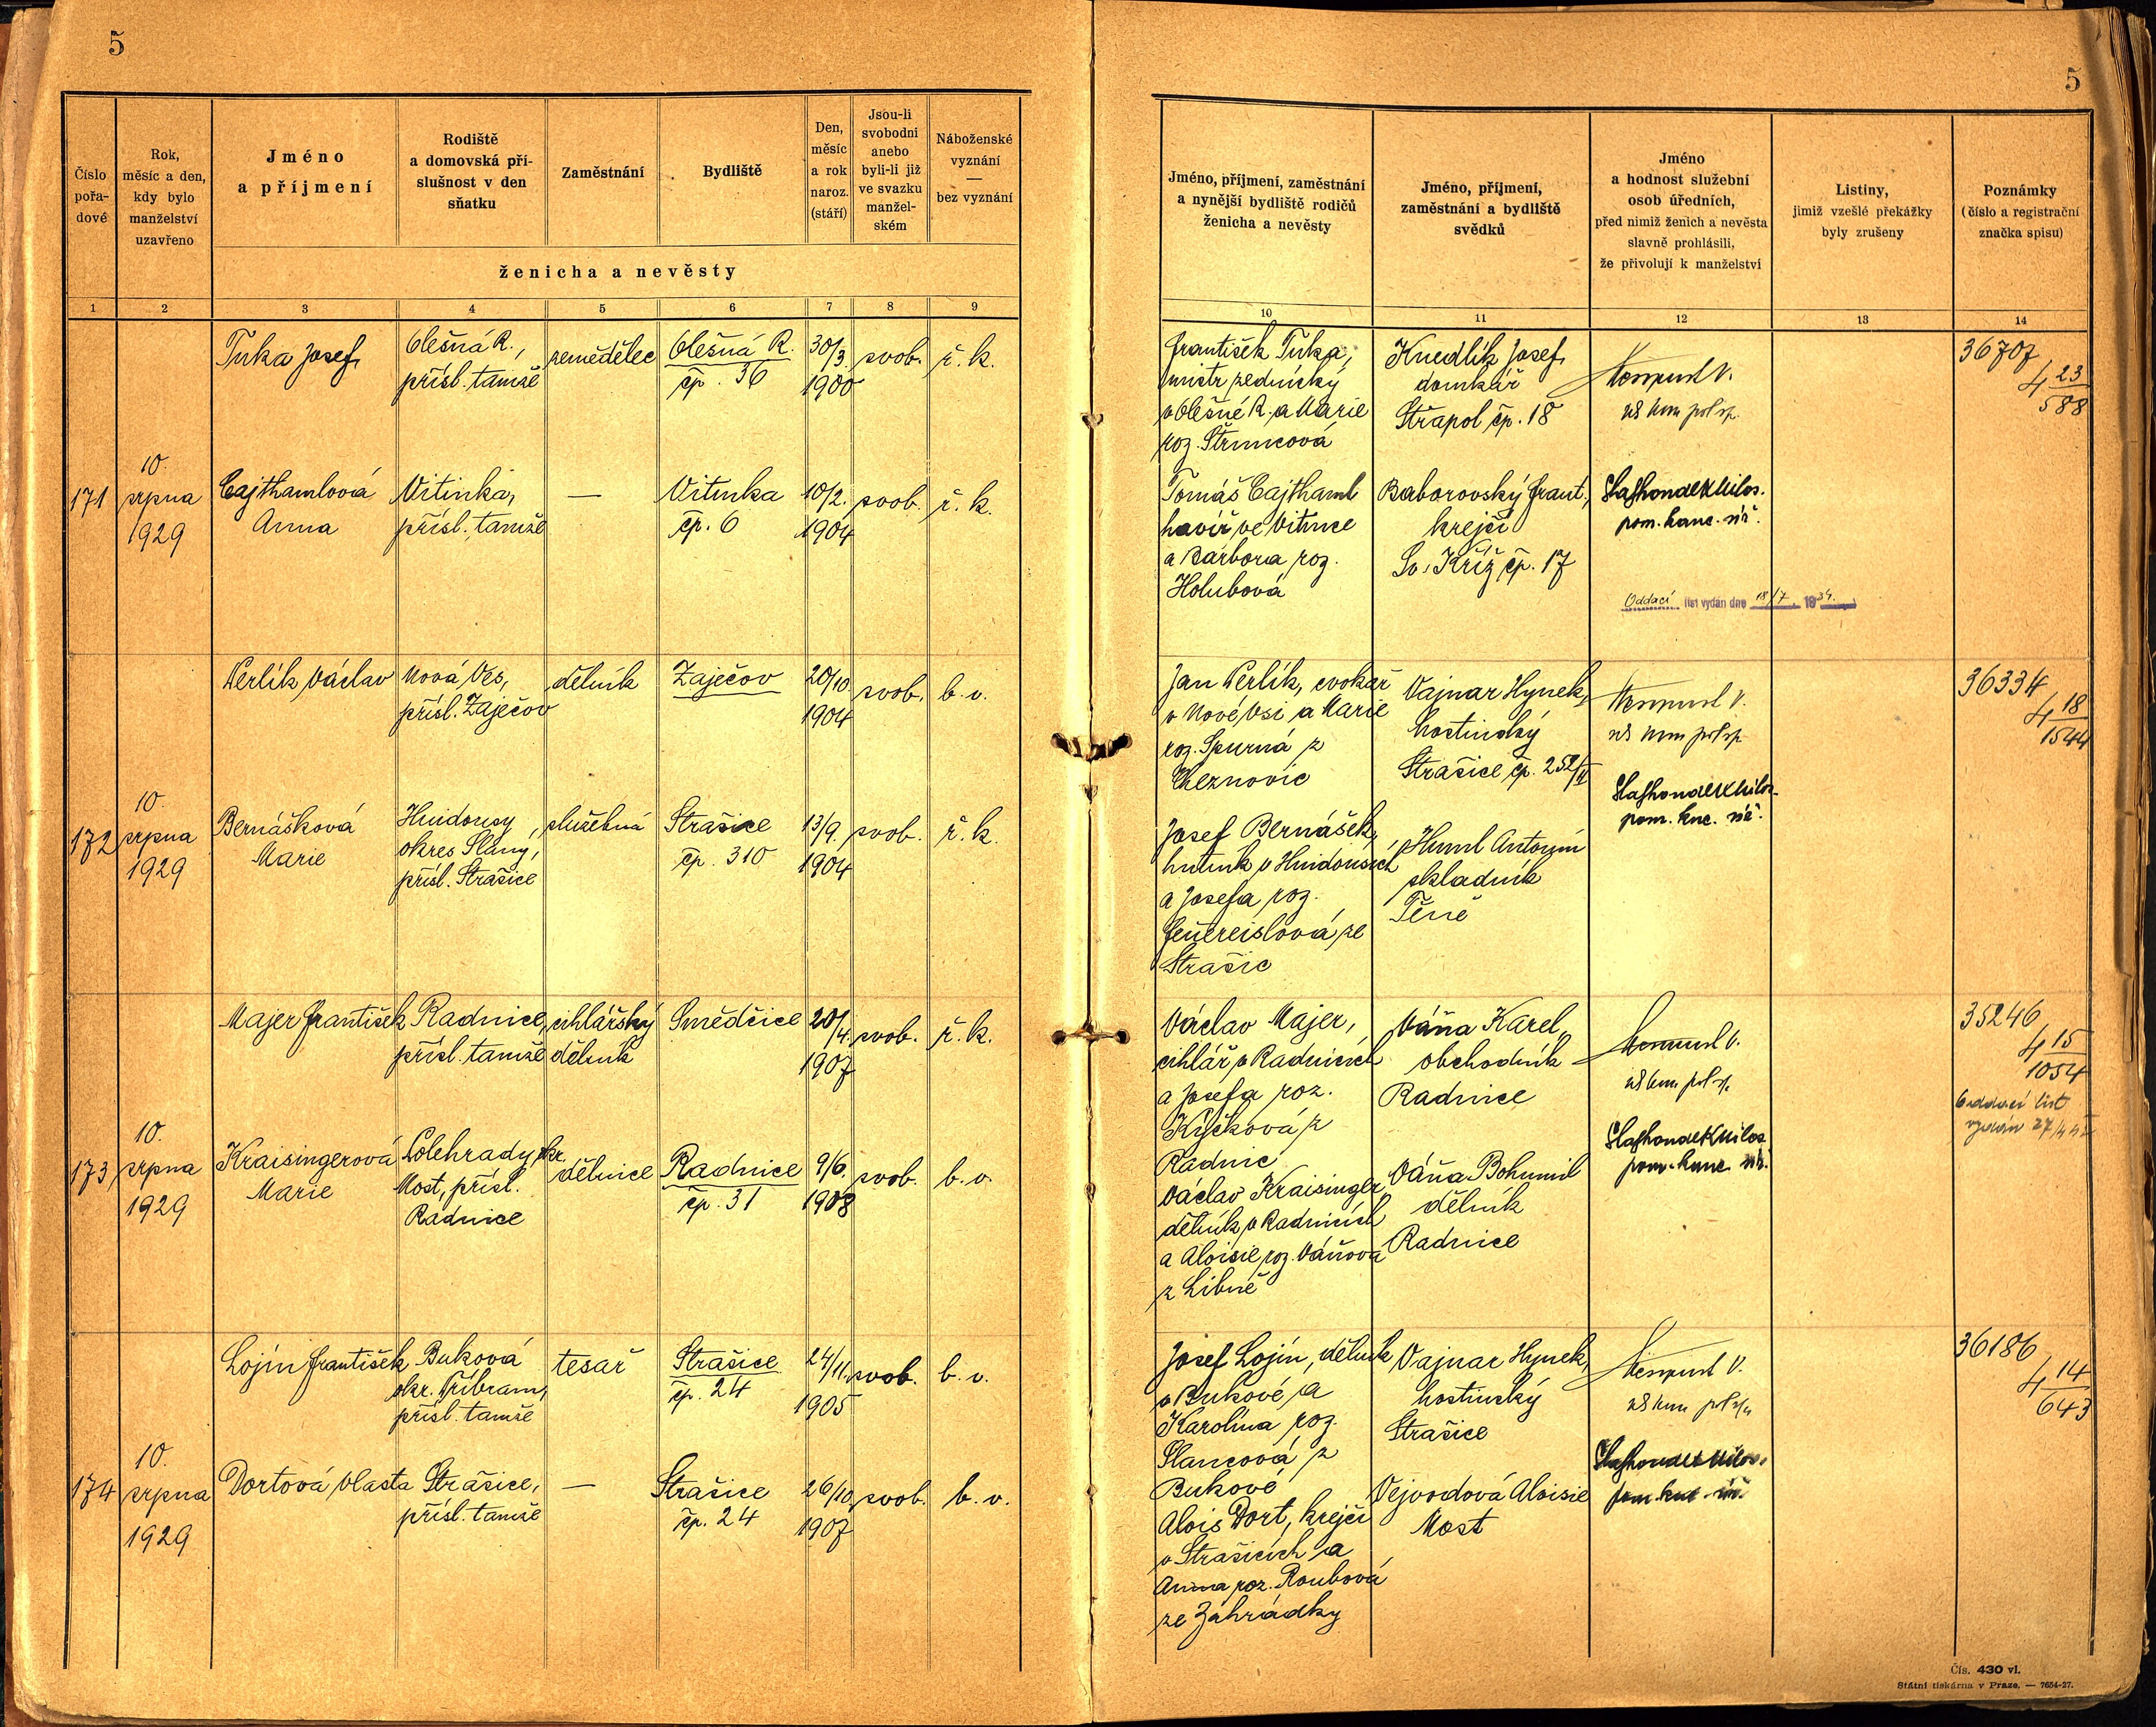 5
Číslo
pořa-
dové
Rok,
měsíc a den,
kdy bylo
manželství
uzavřeno
Jméno
a příjmení
Rodiště
a domovská pří-
slušnost v den
sňatku
Zaměstnání
Bydliště
Den,
měsíc
a rok
naroz.
(stáří)
Jsou-li
svobodni
anebo
byli-li již
ve svazku
manžel-
ském
Náboženské
vyznání
—
bez vyznání
ženicha a nevěsty
1 2 3 4 5 6 7 8 9
Tuka Josef,
Olešná R.,
přísl. tamže
zemědělec
Olešná R.
čp. 36
30/3.
1900
svob.
ř. k.
171
10.
srpna
1929
Cajthamlová
Anna
Vitinka,
přísl. tamže
—
Vitinka
čp. 6
10/2.
1904
svob.
ř. k.
Perlík Václav
Nová Ves,
přísl. Zaječov
dělník
Zaječov
20/10
1904
svob.
b. v.
172
10.
srpna
1929
Bernášková
Marie
Hnidousy
okres Slaný,
přísl. Strašice
služebná
Strašice
čp. 310
13/9.
1904
svob.
ř. k.
Majer František
Radnice,
přísl. tamže
cihlářský
dělník
Smědčice
20/4.
1907
svob.
ř. k.
173
10.
srpna
1929
Kraisingerová
Marie
Dolehrady, okr.
Most, přísl.
Radnice
dělnice
Radnice
čp. 31
9/6.
1908
svob.
b. v.
Lojín František,
Buková
okr. Příbram,
přísl. tamže
tesař
Strašice
čp. 24
24/11.
1905
svob.
b. v.
174
10.
srpna
1929
Dortová Vlasta
Strašice,
přísl. tamže
—
Strašice
čp. 24
26/10
1907
svob.
b. v.
5
Jméno, příjmení, zaměstnání
a nynější bydliště rodičů
ženicha a nevěsty
Jméno, příjmení,
zaměstnání a bydliště
svědků
Jméno
a hodnost služební
osob úředních,
před nimiž ženich a nevěsta
slavně prohlásili,
že přivolují k manželství
Listiny,
jimiž vzešlé překážky
byly zrušeny
Poznámky
(číslo a registrační
značka spisu)
10 11 12 13 14
František Tuka,
mistr zednický
v Olešné R. a Marie
roz. Štruncová
Knedlík Josef,
domkář
Střapol čp. 18
36707
4 23/588
Tomáš Cajthaml
havíř ve Vitince
a Barbora roz.
Holubová
Baborovský Frant.,
krejčí
Sv. Kříž čp. 17
pom. kanc. úř.
Oddací list vydán dne 18/7. 1934.
Jan Perlík, cvokař
v Nové Vsi a Marie
roz. Spurná z
Cheznovic
Vajnar Hynek,
hostinský
Strašice čp. 252/II
36334
4 18/1544
Josef Bernášek,
hutník v Hnidousích
a Josefa roz.
Feuereislová ze
Strašic
Huml Antonín
skladník
Těně
pom. knc. úř.
Václav Majer,
cihlář v Radnicích
a Josefa roz.
Kyčková z
Radnic
Váňa Karel,
obchodník
Radnice
35246
4 15/1054
Oddací list
vydán
Václav Kraisinger
dělník v Radnicích
a Aloisie roz. Váňová
z Libně
Váňa Bohumil
dělník
Radnice
pom. kanc. úř.
Josef Lojín, dělník
v Bukové a
Karolina roz.
Slancová z
Bukové
Vajnar Hynek,
hostinský
Strašice
36186
4 14/643
Alois Dort, krejčí
v Strašicích a
Anna roz. Roubová
ze Zahrádky
Vejvodová Aloisie
Most
Čís. 430 vl.
Státní tiskárna v Praze. — 7654-27.